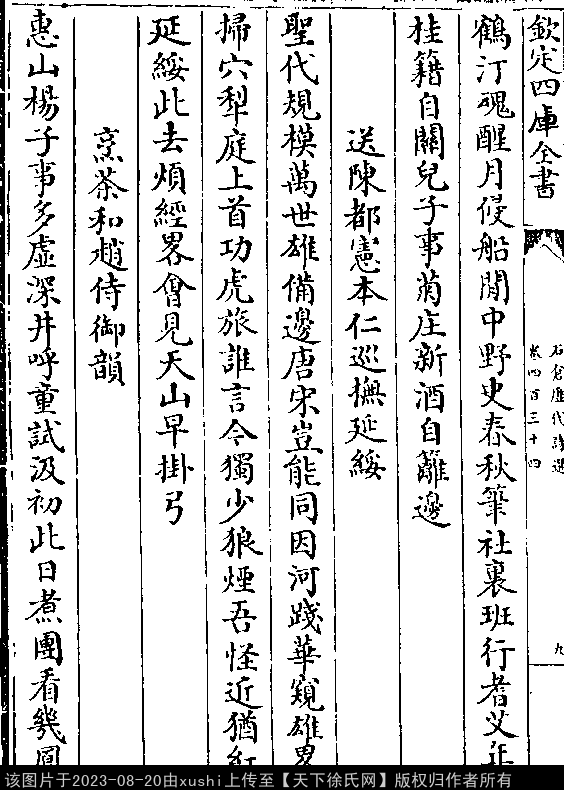 欽定四庫全書
石倉歷代詩選
卷四百三十四
九
鶴汀魂醒月侵船閒中野史春秋筆社裏班行耆艾年
桂籍自關兒子事菊庄新酒自籬邊
送陳都憲本仁巡撫延綏
聖代規模萬世雄備邊唐宋豈能同因河踐華窺雄畧
掃穴犁庭上首功虎旅誰言今獨少狼煙吾怪近猶紅
延綏此去煩經畧會見天山早掛弓
烹茶和趙侍御韻
惠山楊子事多虛深井呼童試汲初此日煮團看幾圓
该图片于2023-08-20由xushi上传至【天下徐氏网】版权归作者所有